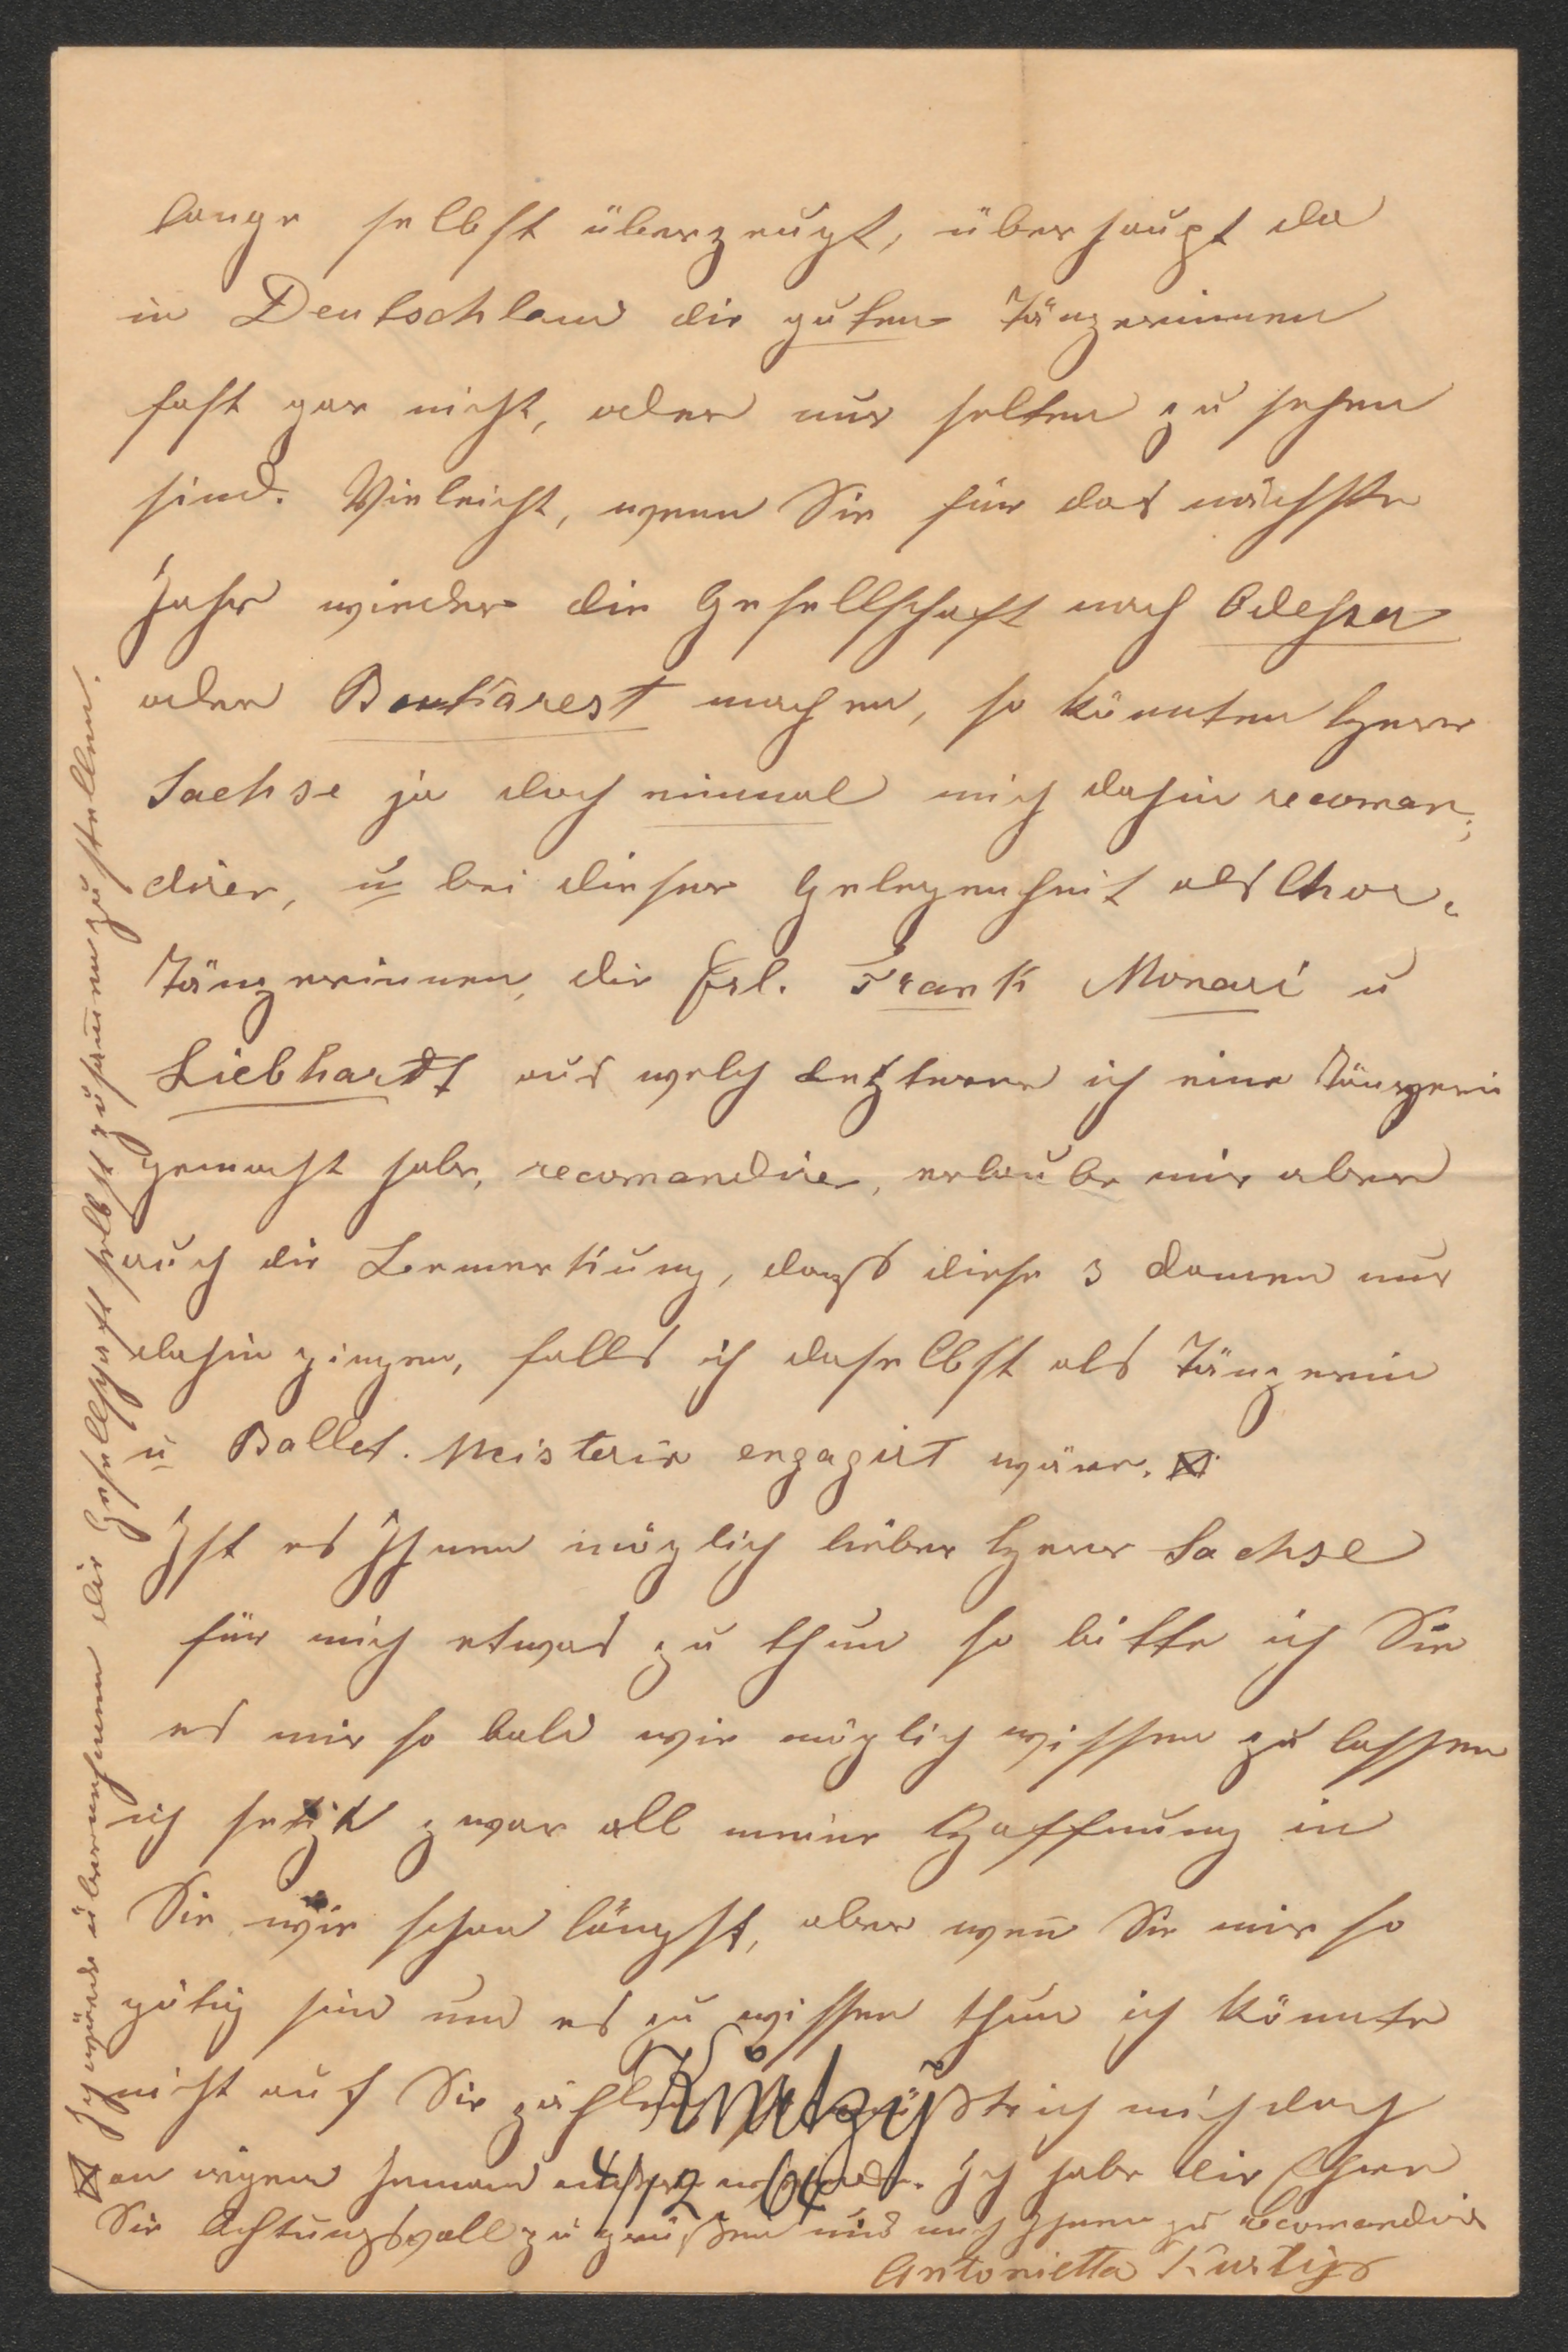 lange selbst überzeugt, überhaupt da
in Deutschland die guten Tänzerinnen
fast gar nicht, oder nur selten zu sehen
sind. Vieleicht, wenn Sie für das nächste
Jahr wieder die Gesellschaft nach Odessa
oder Boukarest machen, so könnten Herr
Sachse ja doch einmal mich dahin recoman,
dier, u bei dieser Gelegenheit als Chor,
Tänzerinnen, die Frl. Frank Monari u
Liebhardt aus welch letzterer ich eine Tänzerin
gemacht habe, recomandire, erlaube mir aber
auch die Bemerkung, dass diese 3 damen nur
dahin gingen, falls ich daselbst als Tänzerin
u Ballet. Meisterin engagirt wäre.
Ist es Ihnen möglich lieber Herr Sachse
für mich etwas zu thun so bitte ich Sie
es mir so bald wie möglich wissen zu lassen
ich setzte zwar all meine Hoffnung in
Sie wie schon längst, aber wen̄ Sie mir so
gütig sind um es zu wissen thun ich könnte
nicht auf Sie zählen müßte ich mich doch
an irgend jemand wenden. Ich habe die Ehre
Sie Achtungsvoll zu grüßen und mich Ihnen zu recomandire
Antonietta Kurtzig
4/12 64
Ich würde übernehmen die Gesellschaft selbst zusam̄enzustellen.